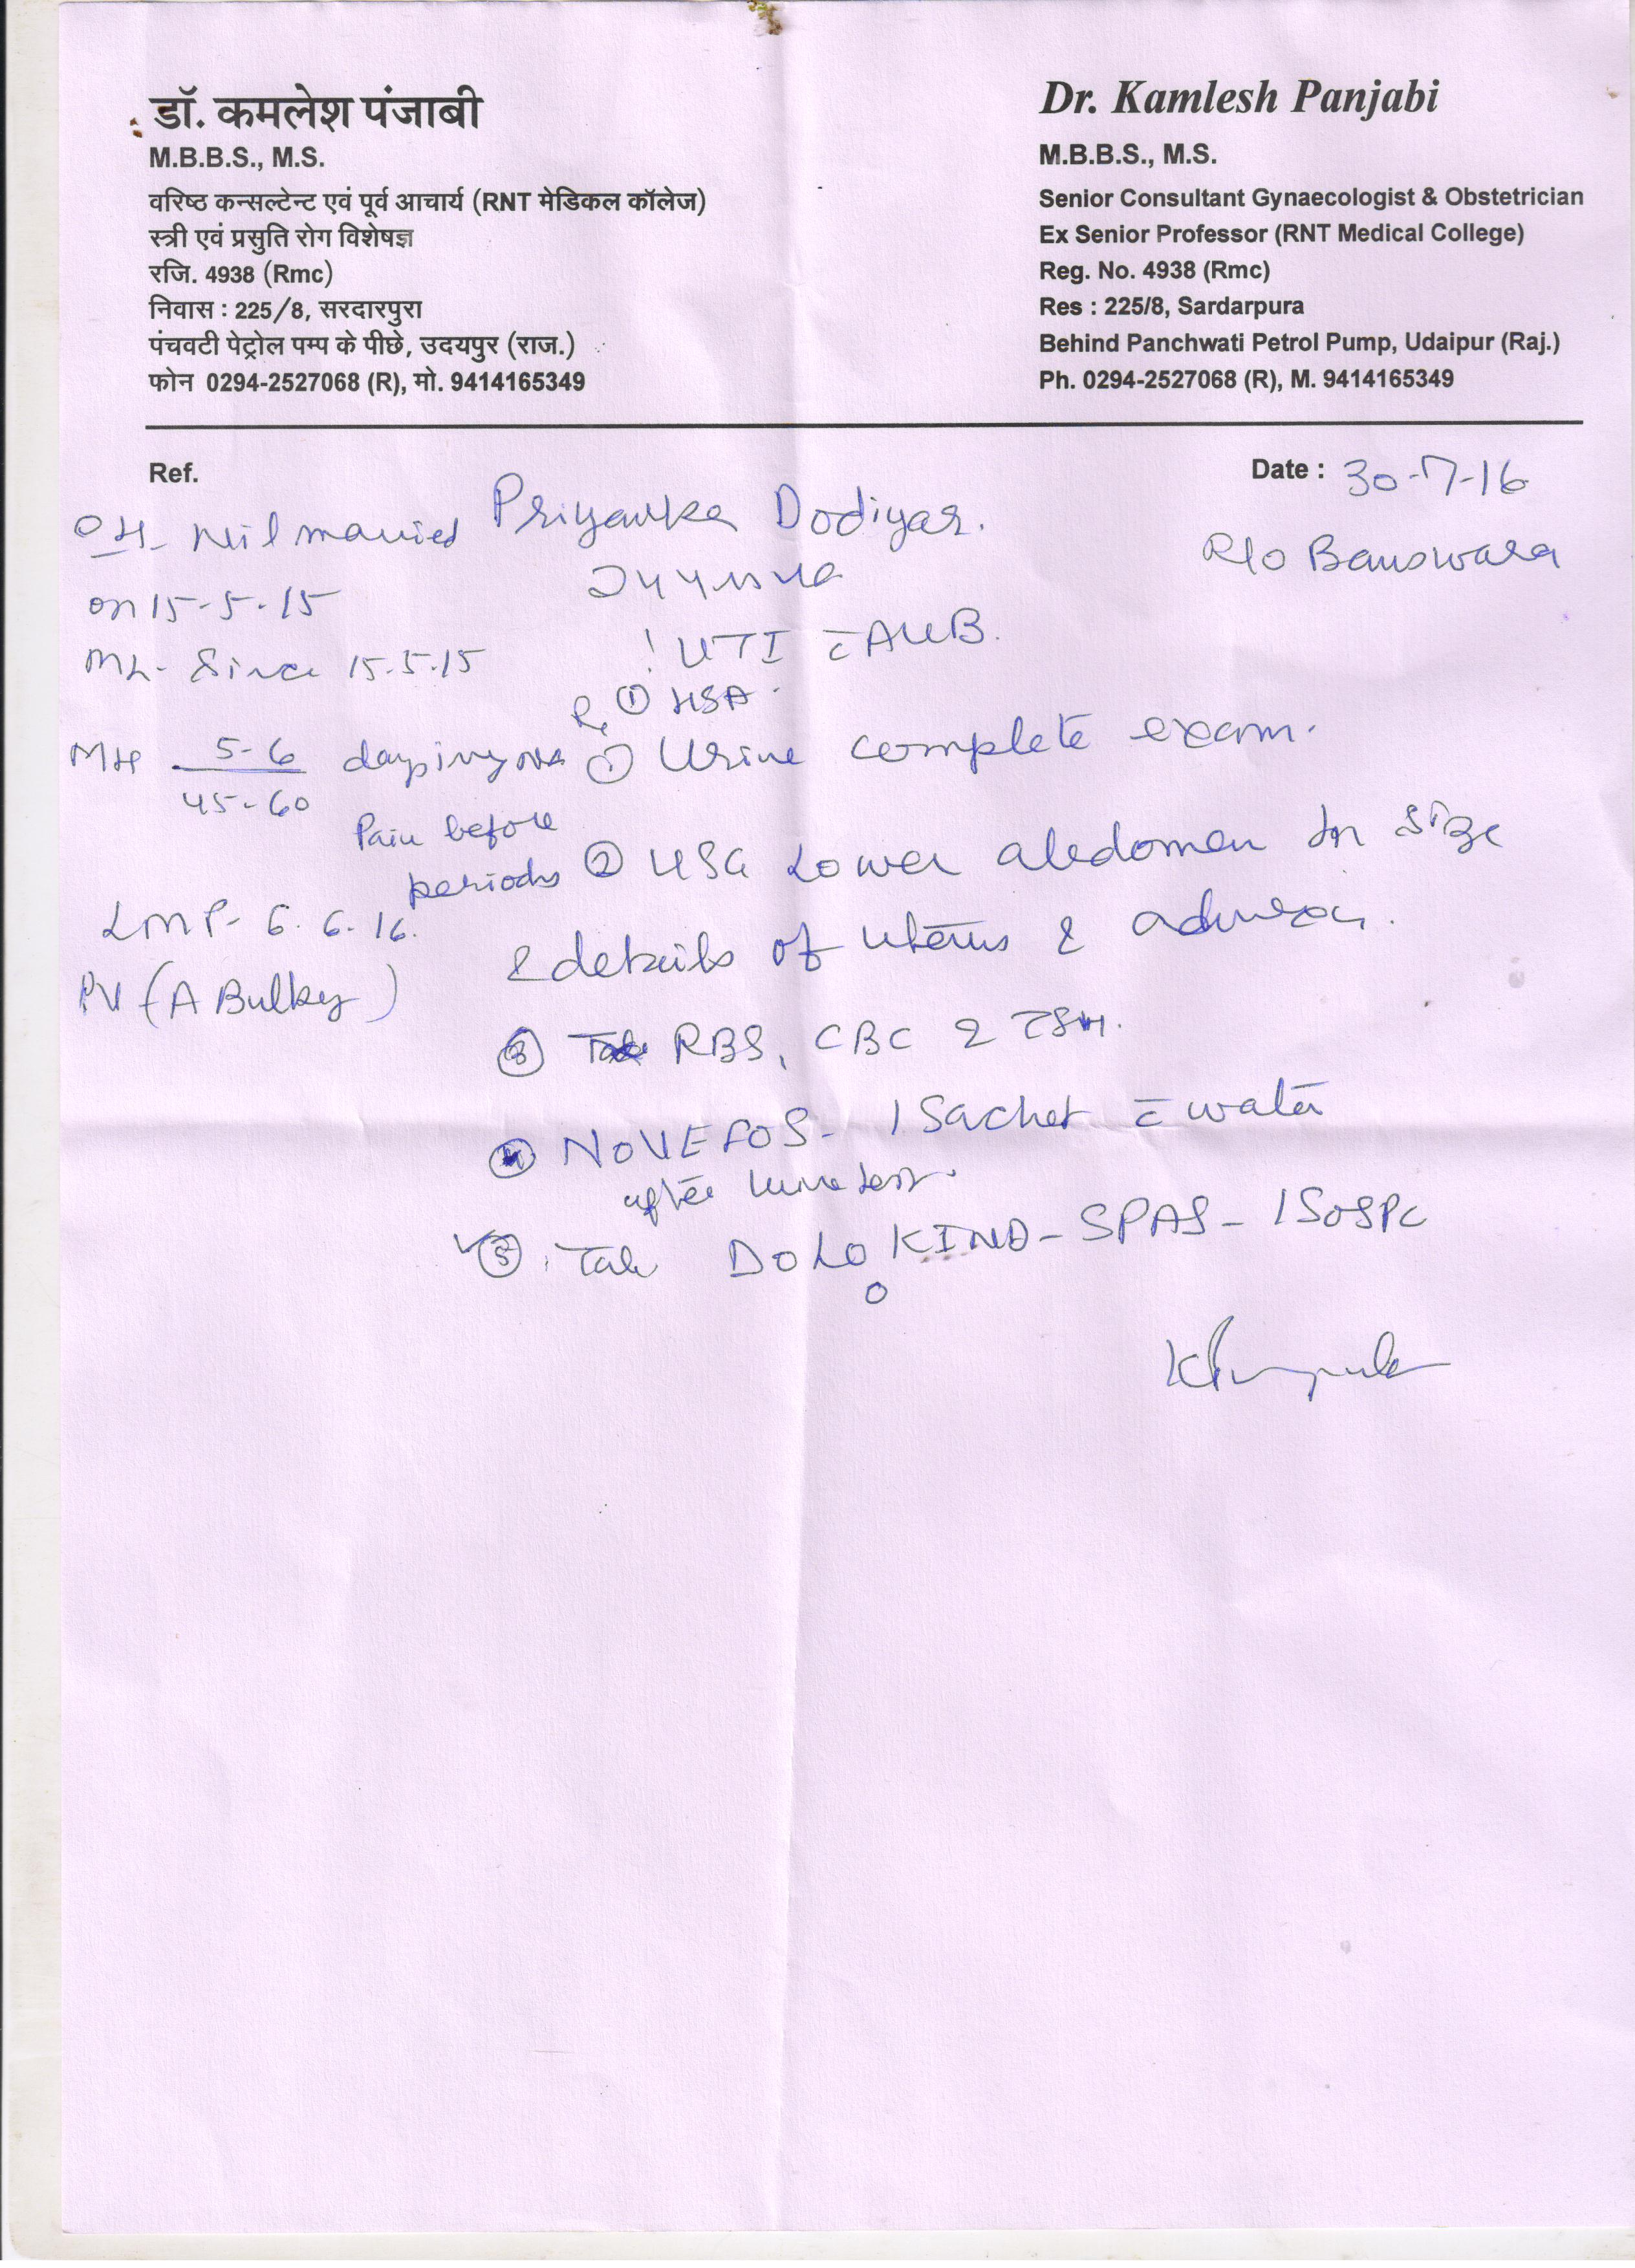 डॉ. कमलेश पंजाबी
M.B.B.S., M.S.
वरिष्ठ कन्सल्टेन्ट एवं पूर्व आचार्य (RNT मेडिकल कॉलेज)
स्त्री एवं प्रसुति रोग विशेषज्ञ
रजि. 4938 (Rmc)
निवास : 225/8, सरदारपुरा
पंचवटी पेट्रोल पम्प के पीछे, उदयपुर (राज.)
फोन 0294-2527068 (R), मो. 9414165349
Dr. Kamlesh Panjabi
M.B.B.S., M.S.
Senior Consultant Gynaecologist & Obstetrician
Ex Senior Professor (RNT Medical College)
Reg. No. 4938 (Rmc)
Res : 225/8, Sardarpura
Behind Panchwati Petrol Pump, Udaipur (Raj.)
Ph. 0294-2527068 (R), M. 9414165349
Ref.
Date : 30-7-16
Priyanka Dodiyar.
R/o Banswara
OH- Nil married
on 15-5-15
ML- Since 15.5.15
MH 5-6
45-60
Pain before
periods
LMP- 6.6.16.
PV (A Bulky)
! UTI c̄ AUB.
① Urine complete exam.
② USG Lower abdomen for size
& details of uterus & adnexa.
③ RBS, CBC & TSH.
④ NOVEFOS- 1 Sachet c̄ water
after
⑤ Tab DOLOKIND-SPAS- 1 SOS PC